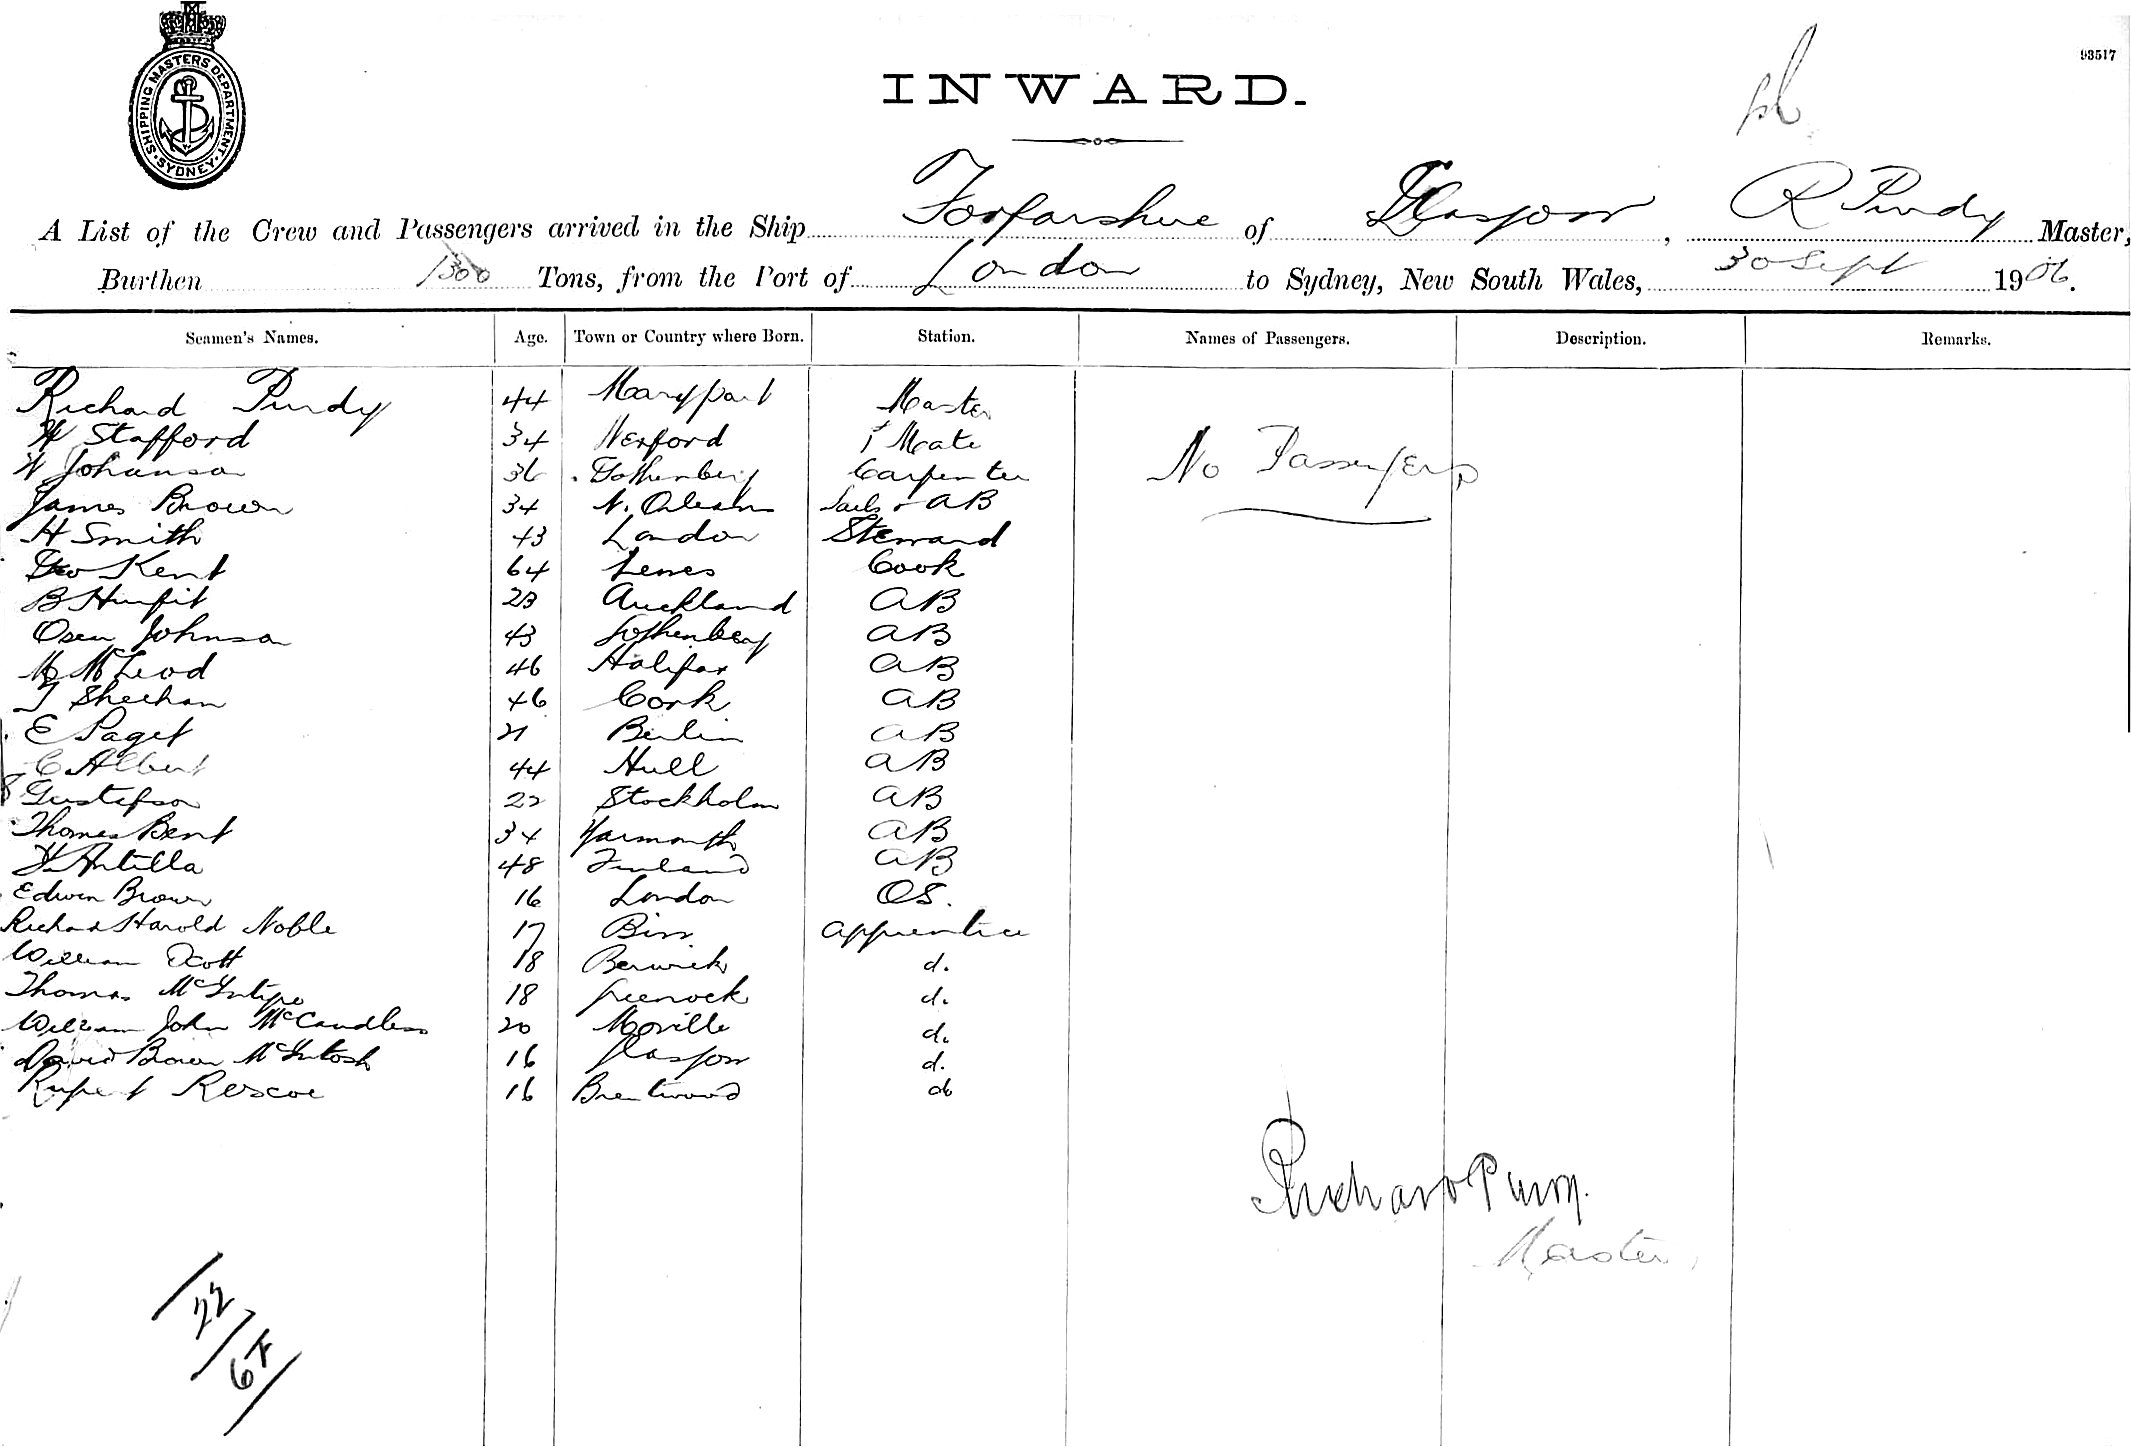 SHIPPING MASTERS DEPARTMENT · SYDNEY ·
93517
INWARD.
A List of the Crew and Passengers arrived in the Ship Forfarshire of Glasgow, R Purdy Master,
Burthen 1300 Tons, from the Port of London to Sydney, New South Wales, 30 Sept 1906.
Seamen's Names. Age. Town or Country where Born. Station. Names of Passengers. Description. Remarks.
Richard Purdy 44 Maryport Master
W Stafford 34 Wexford 1 Mate
Johanson 36 Gothenberg Carpenter
No Passengers
James Brown 34 N. Orleans Sails & AB
H Smith 43 London Steward
Geo Kent 64 Lewes Cook
B 23 Auckland AB
Johnson 43 Gothenberg AB
M McLeod 46 Halifax AB
T Sheehan 46 Cork AB
E Paget 21 Berlin AB
C Albert 44 Hull AB
Gustafson 22 Stockholm AB
Thomas Bent 34 Yarmouth AB
Antilla 48 Finland AB
Edwin Brown 16 London OS.
Richard Harold Noble 17 Birr apprentice
William Scott 18 Berwick d.
Thomas McIntyre 18 Greenock d.
William John McCandless 20 Moville d.
David Brown McIntosh 16 Glasgow d.
Rupert Roscoe 16 Brentwood do
Richard Purdy.
Master
22